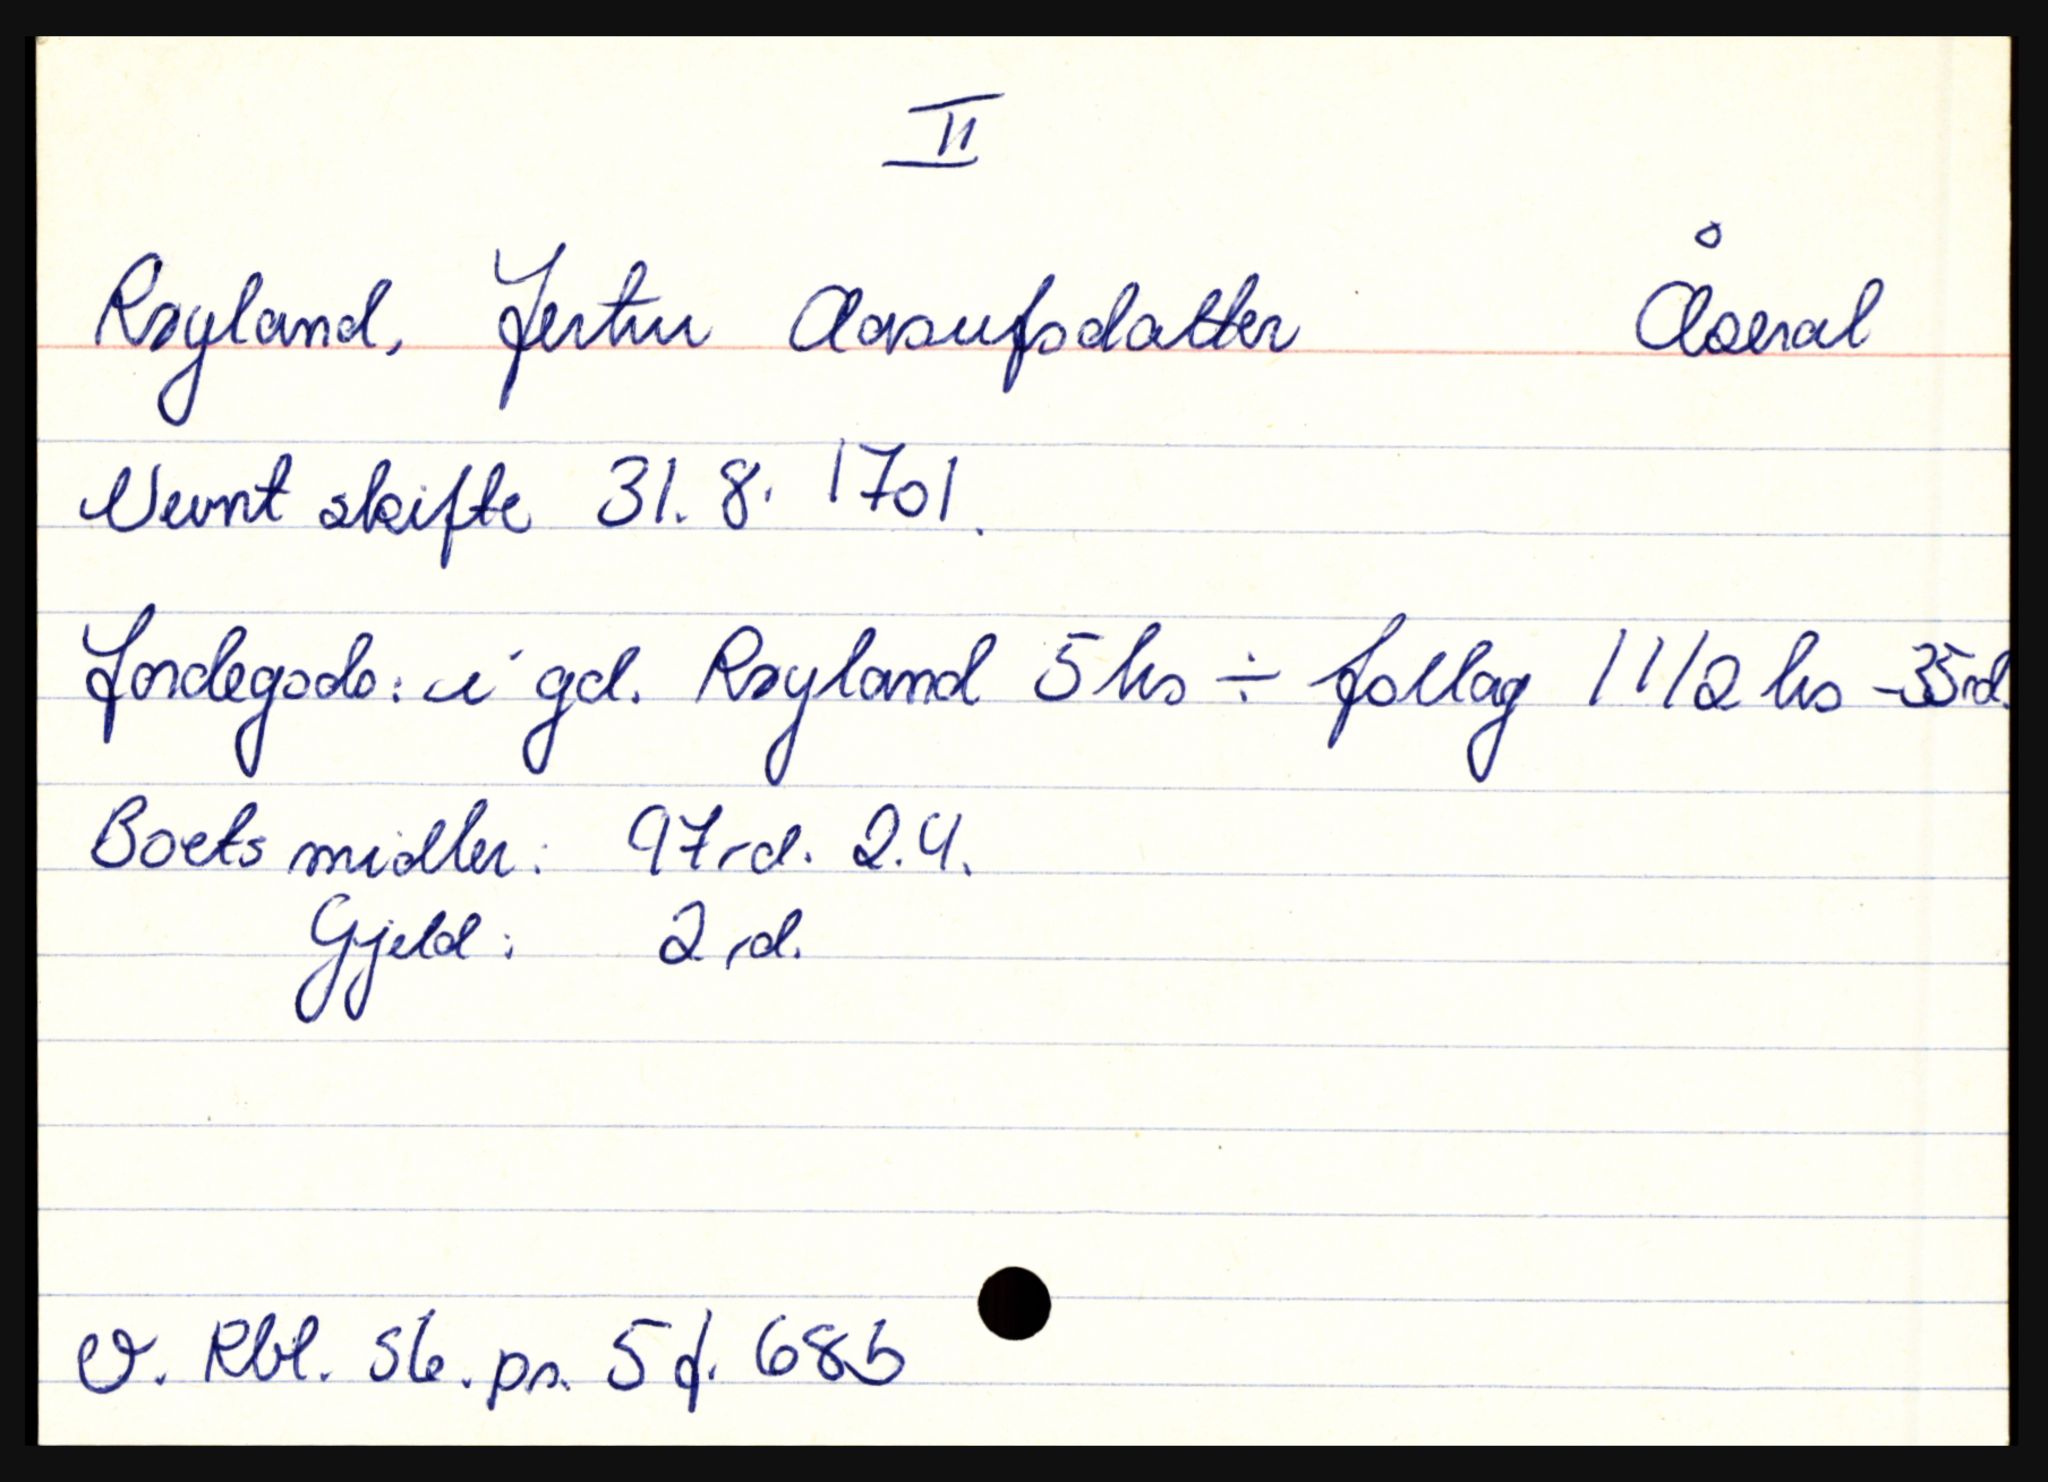 II
Røyland, Jertru Aasufsdatter Åseral
Nevnt skifte 31.8. 1701.
Jordegods: i gd. Røyland 5 hs ÷ follag 1 1/2 hs - 35 rd.
Boets midler: 97 rd. 2.4.
Gjeld: 2 rd.
V. Rbl. Sk. pr. 5 f. 68b